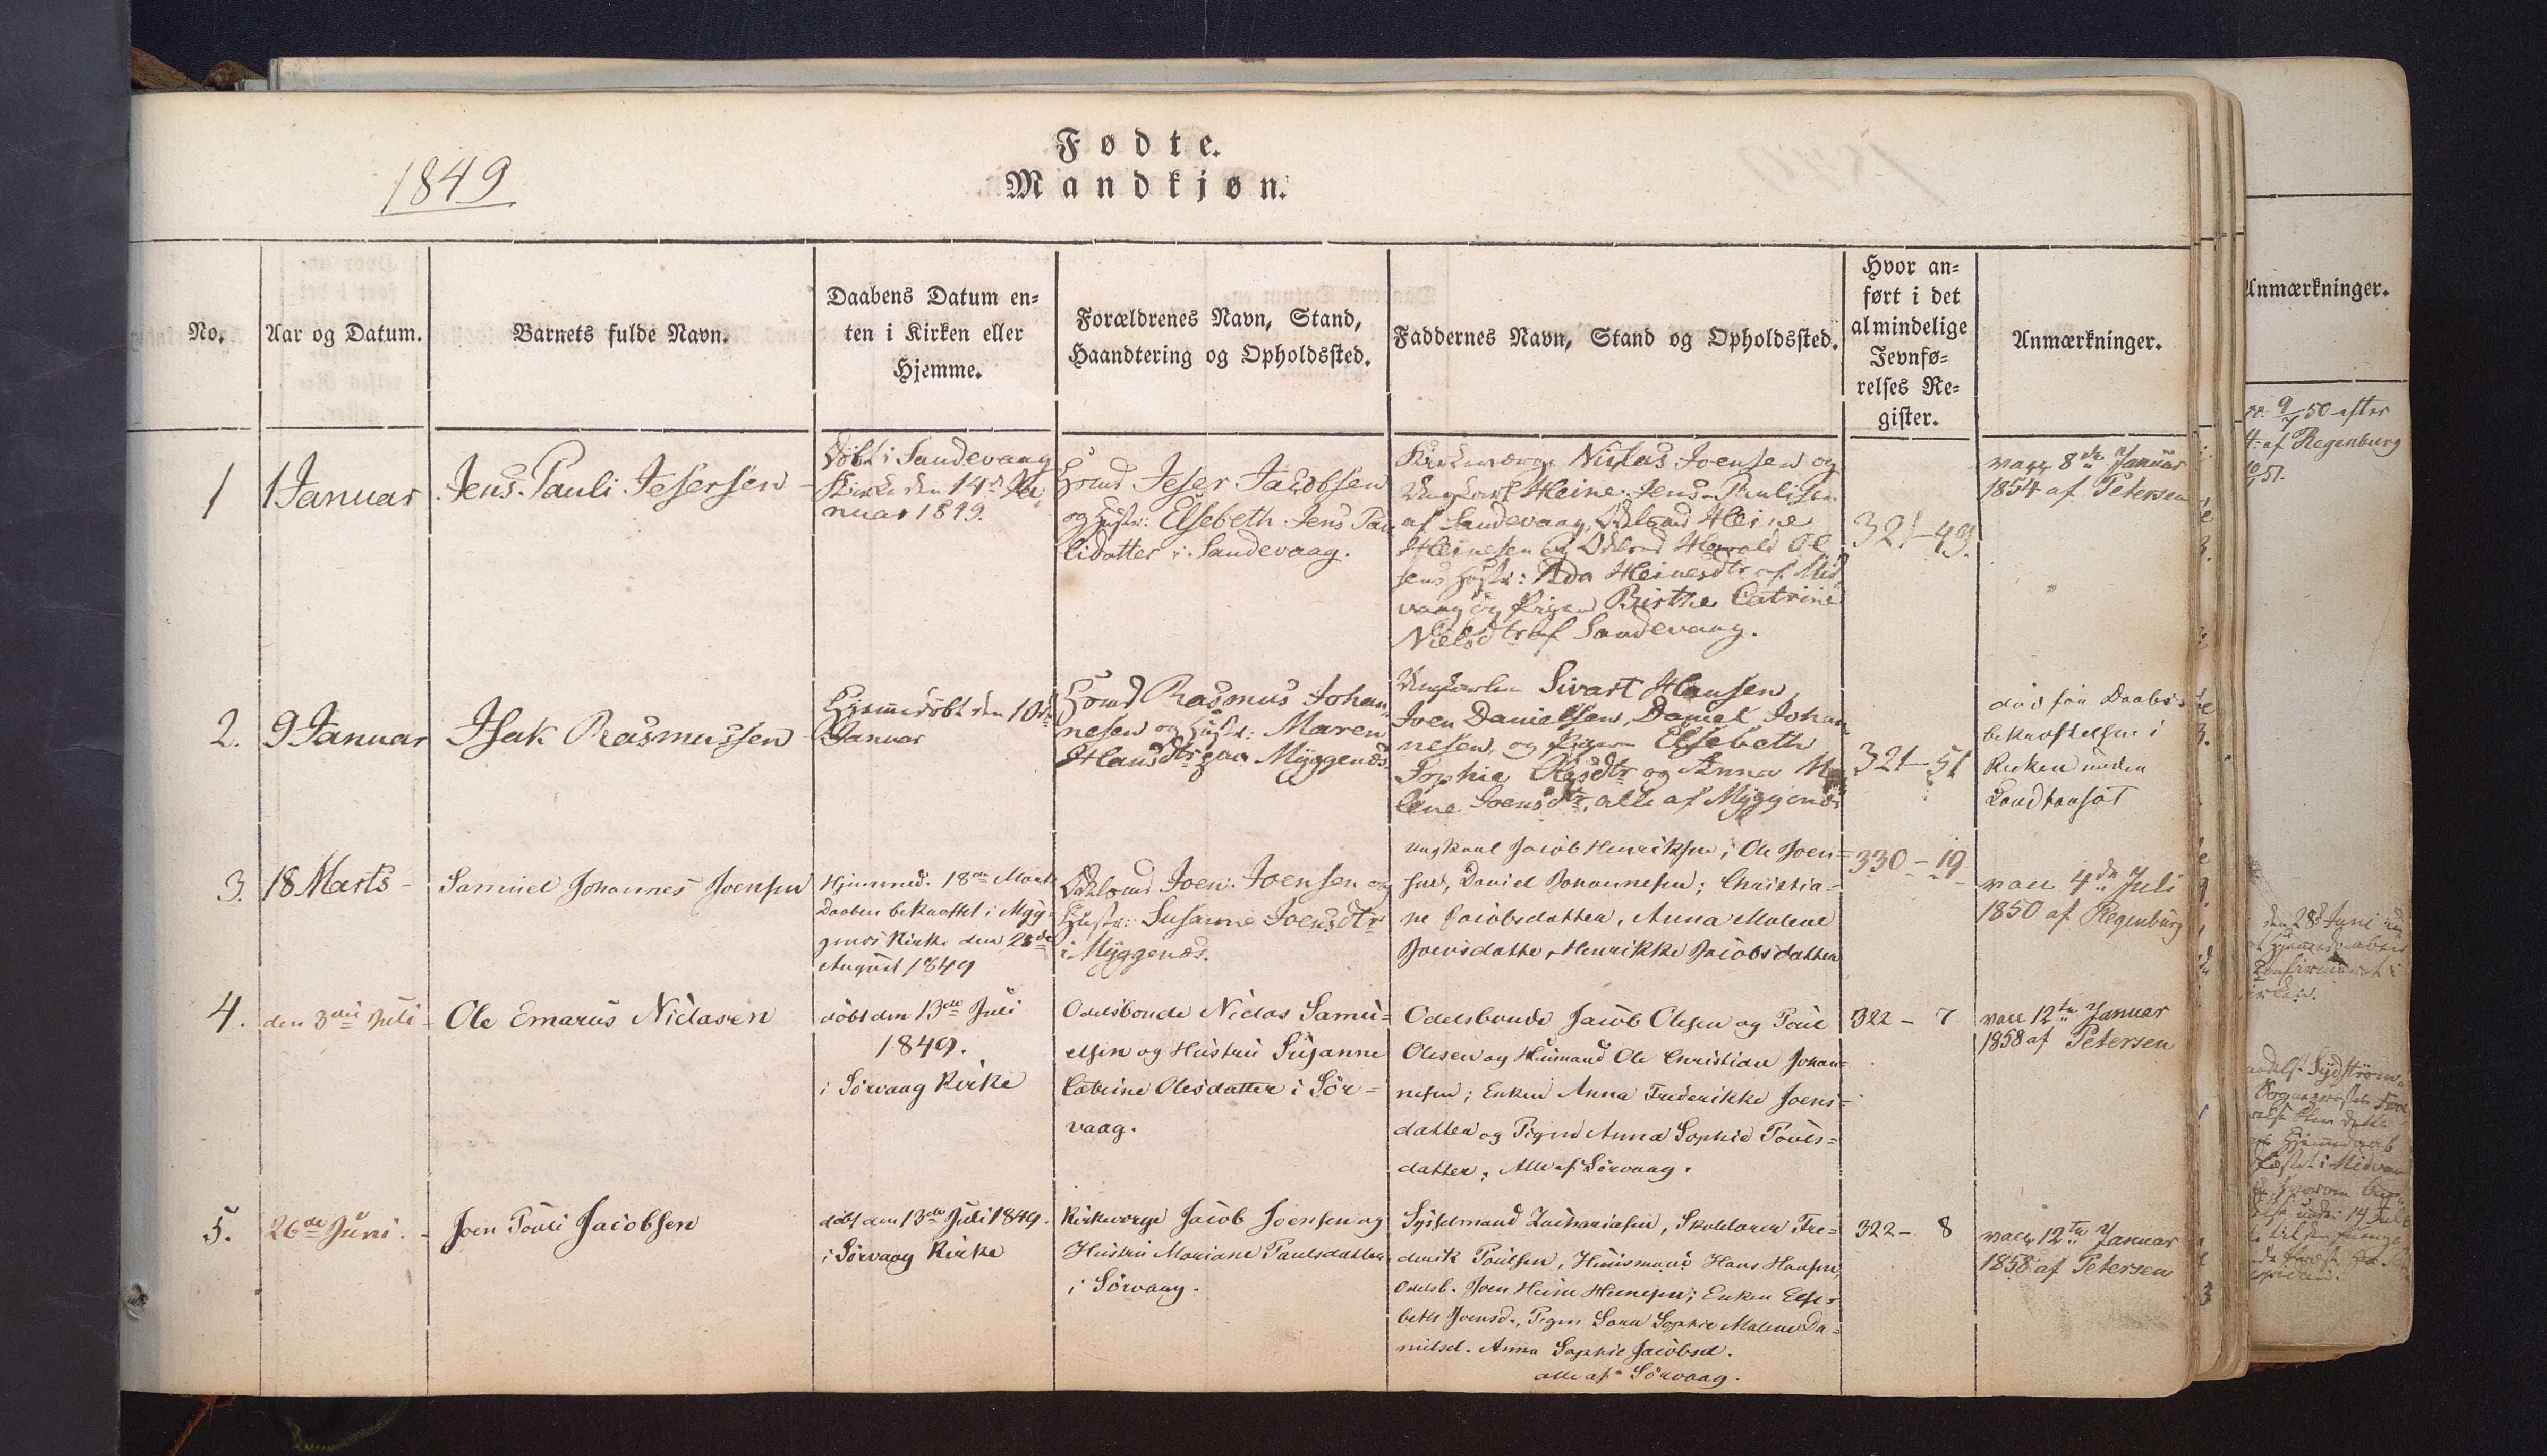 Fødte.
Mandkjøn.
1849
No.
Aar og Datum.
Barnets fulde Navn.
Daabens Datum en=
ten i Kirken eller
Hjemme.
Forældrenes Navn, Stand,
Haandtering og Opholdssted.
Faddernes Navn, Stand og Opholdssted.
Hvor an=
ført i det
almindelige
Jevnfø=
relses Re=
gister.
Anmærkninger.
1
1 Januar
Jens Pauli Jesersen
Döbt i Sandevaag
Kirke den 14de Ja
nuar 1849.
Jeser Jacobsen
og Hustr: Elsebeth Jens Pau
lidatter i Sandevaag.
Kirkeværge Niclas Joensen og
Heine Jens-Paulisen
af Sandevaag, Heine
Heinesen og Harald Ol
sens Hustr: Ada Heinesdtr af Mid
vaag og Pigen Birthe Catrine
Nielsdtr af Sandevaag.
321-49.
vacc 8de Januar
1854 af Petersen
2.
9 Januar
Isak Rasmussen
Hjemmedöbt den 10de
Januar
Rasmus Johan
nesen og Hustr: Maren
Hansdtr paa Myggenæs.
Sivart Hansen,
Joen Danielsen, Daniel Johan
nesen, og Elsebeth
Sophia Olesdtr og Anna Ma
lene Joensdtr, alle af Myggenæs
321-51
död før Daabs
bekræftelsen i
Kirken
3.
18 Marts
Samuel Johannes Joensen
Hjemmed. 18de Marts
Daaben bekræftet i Myg=
genæs Kirke den 28de
August 1849
Joen Joensen og
Hustr: Susanne Joensdtr
i Myggenæs.
Ungkarl Jacob Henriksen; Ole Joen=
sen, Daniel Johannesen; Christia=
ne Jacobsdatter, Anna Malene
Joensdatter, Henrikke Jacobsdatter
330-19
vacc 4de Juli
1850 af Regenburg
4.
den 3die Juli
Ole Emarus Niclasen
döbt den 13de Juli
1849.
i Sörvaag Kirke
Odelsbonde Niclas Samu=
elsen og Hustru Susanne
Catrine Olesdatter i Sör=
vaag.
Odelsbonde Jacob Olesen og Poul
Olesen og Huusmand Ole Christian Johan=
nesen; Enken Anna Frederikke Joens=
datter og Pigen Anna Sophie Pouls=
datter. Alle af Sörvaag.
322-7
vacc 12te Januar
1858 af Petersen
5.
26de Juni.
Joen Pouli Jacobsen
döbt den 13de Juli 1849.
i Sörvaag Kirke
Kirkeværge Jacob Joensen og
Hustru Mariane Paulsdatter
i Sörvaag.
Sysselmand Zachariasen, Skolelærer Fre=
derik Poulsen, Huusmand Hans Hansen,
Odelsb. Joen Heine Heinesen; Enken Else=
beth Joensd., Pigen Sara Sophie Malene Da=
nielsd. Anna Sophie Jacobsd.
alle af Sörvaag.
322-8
vacc 12te Januar
1858 af Petersen
Anmærkninger.
9/7 50 efter
af Regenburg